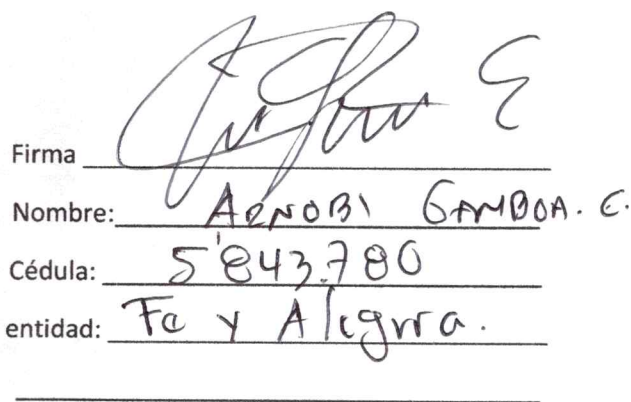 Firma
Nombre: ARNOBI GAMBOA. C.
Cédula: 5'843.780
entidad: Fe y Alegria.